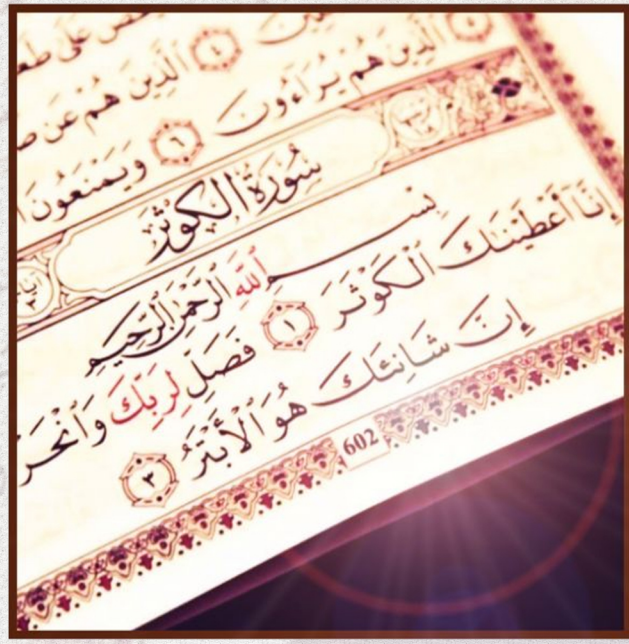 ٱلَّذِينَ هُمْ يُرَآءُونَ ٦ وَيَمْنَعُونَ
سُورَةُ الكَوْثَرِ
بِسْمِ ٱللَّهِ ٱلرَّحْمَٰنِ ٱلرَّحِيمِ
إِنَّآ أَعْطَيْنَٰكَ ٱلْكَوْثَرَ ١ فَصَلِّ لِرَبِّكَ وَٱنْحَرْ
إِنَّ شَانِئَكَ هُوَ ٱلْأَبْتَرُ ٣
602